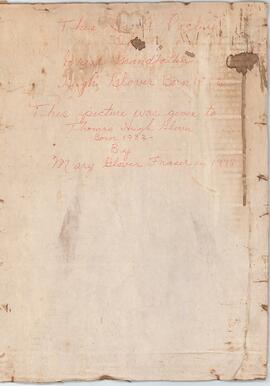 This
Great Grandfather
Hugh Glover Born
This picture was given to
Thomas Hugh Glover
Born 1982-
By
Mary Glover Fraser in 1998